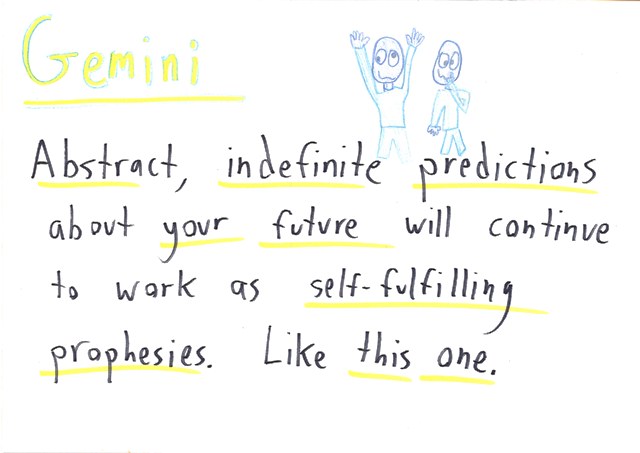 Gemini
Abstract, indefinite predictions
about your future will continue
to work as self-fulfilling
prophesies. Like this one.